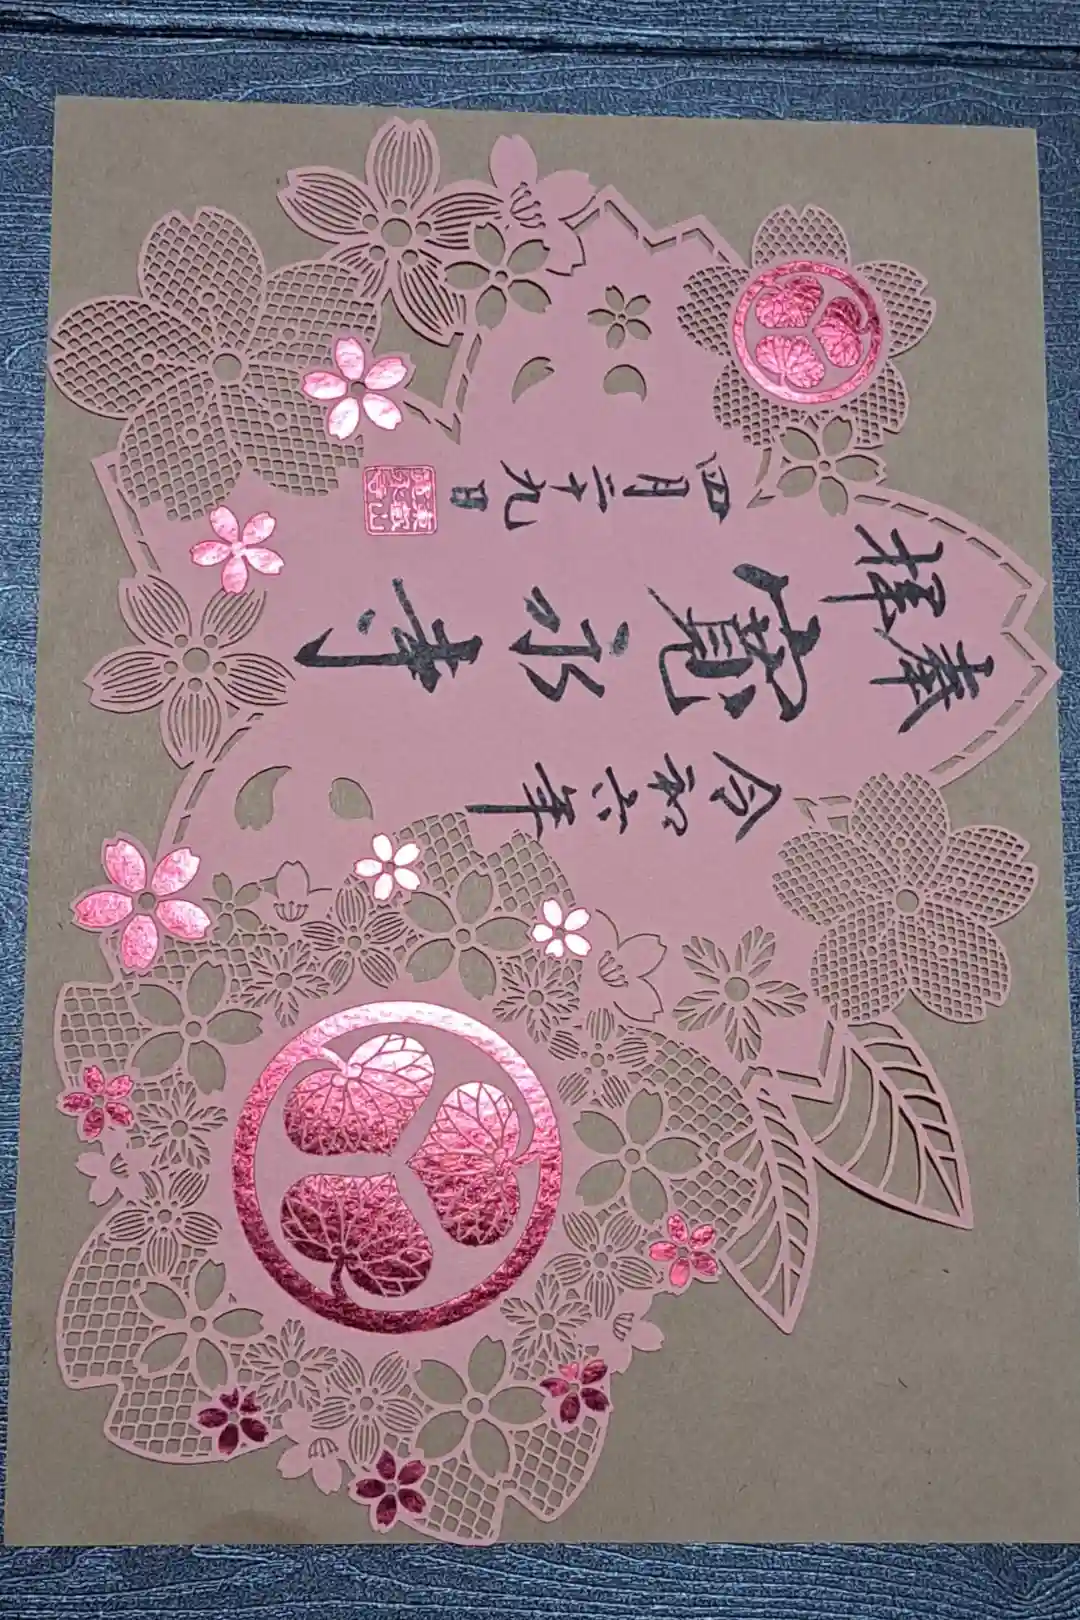 奉拝
四月二十九日
寛永寺
令和六年
東叡山